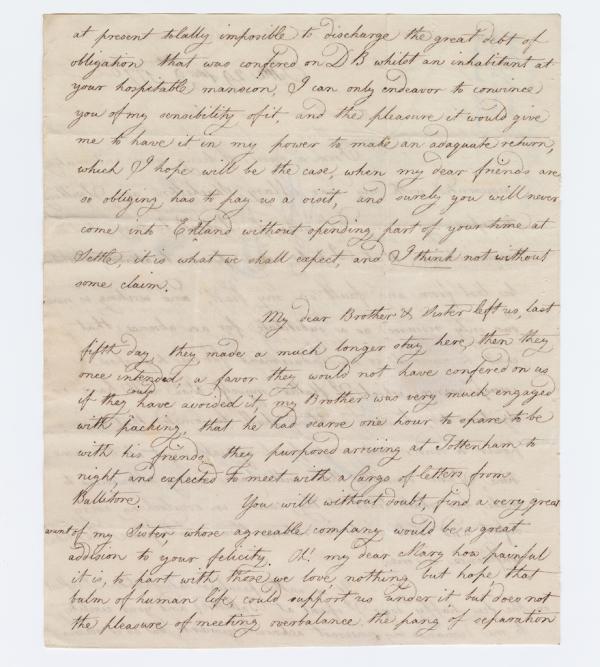 at present totally imposible to discharge the great debt of
obligation that was confered on D B whilst an inhabitant at
your hospitable mansion, I can only endeavor to convince
you of my sensibility of it, and the pleasure it would give
me to have it in my power to make an adaquate return,
which I hope will be the case, when my dear friends are
so obliging has to pay us a visit, and surely you will never
come into England without spending part of your time at
Settle, it is what we shall expect, and I think not without
some claim.
My dear Brother & Sister left us, last
fifth day, they made a much longer stay here, then they
once intended, a favor they would not have confered on us
if they could have avoided it, my Brother was very much engaged
with packing, that he had scarse one hour to spare to be
with his friends, they purposed arriving at Tottenham to
night, and expected to meet with a Cargo of letters from
Ballitore. You will without doubt, find a very great
want of my Sister whose agreeable company would be a great
addision to your felicity. Oh! my dear Mary how painful
it is, to part with those we love, nothing but hope that
balm of human life, could support us under it but does not
the pleasure of meeting overbalance the pang of separation